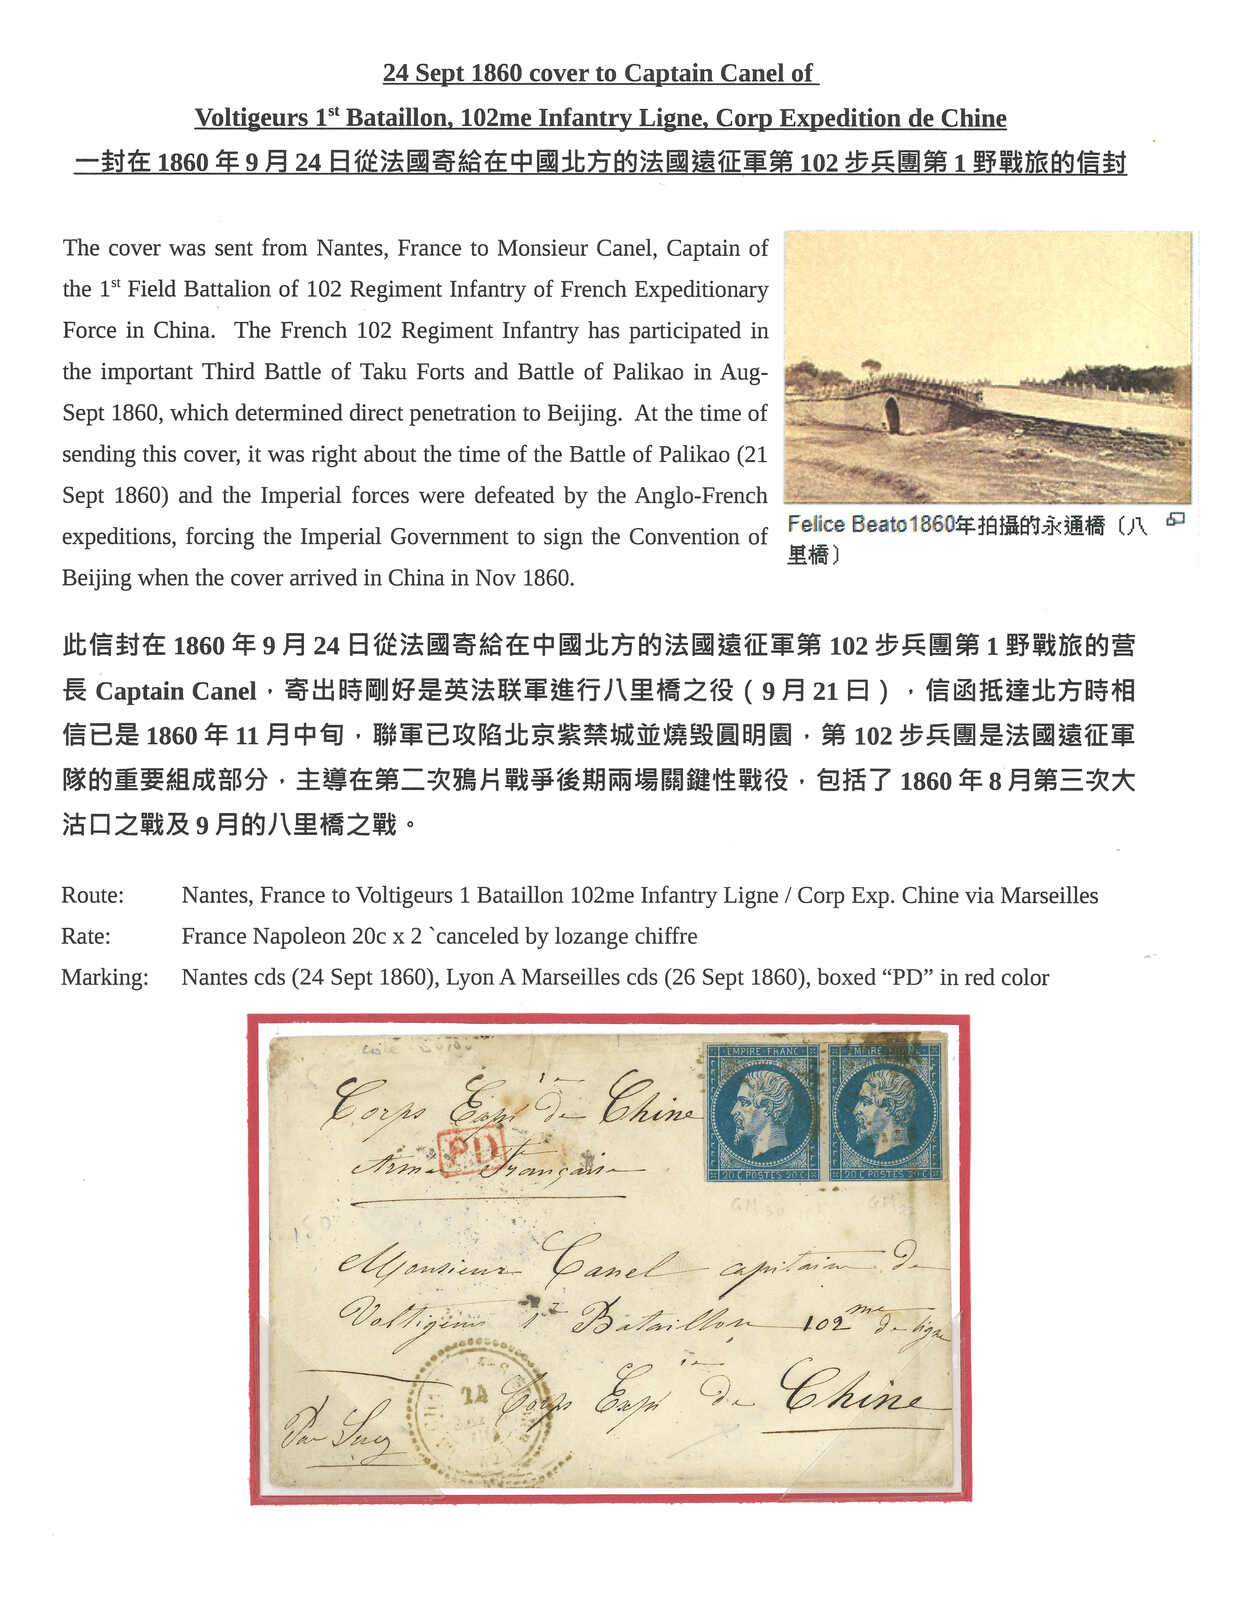 24 Sept 1860 cover to Captain Canel of
Voltigeurs 1st Bataillon, 102me Infantry Ligne, Corp Expedition de Chine
一封在 1860 年 9 月 24 日從法國寄給在中國北方的法國遠征軍第 102 步兵團第 1 野戰旅的信封
The cover was sent from Nantes, France to Monsieur Canel, Captain of
the 1st Field Battalion of 102 Regiment Infantry of French Expeditionary
Force in China. The French 102 Regiment Infantry has participated in
the important Third Battle of Taku Forts and Battle of Palikao in Aug-
Sept 1860, which determined direct penetration to Beijing. At the time of
sending this cover, it was right about the time of the Battle of Palikao (21
Sept 1860) and the Imperial forces were defeated by the Anglo-French
expeditions, forcing the Imperial Government to sign the Convention of
Beijing when the cover arrived in China in Nov 1860.
Felice Beato1860年拍攝的永通橋（八
里橋）
此信封在 1860 年 9 月 24 日從法國寄給在中國北方的法國遠征軍第 102 步兵團第 1 野戰旅的营
長 Captain Canel，寄出時剛好是英法联軍進行八里橋之役（9 月 21 曰），信函抵達北方時相
信已是 1860 年 11 月中旬，聯軍已攻陷北京紫禁城並燒毀圓明園，第 102 步兵團是法國遠征軍
隊的重要組成部分，主導在第二次鴉片戰爭後期兩場關鍵性戰役，包括了 1860 年 8 月第三次大
沽口之戰及 9 月的八里橋之戰。
Route: Nantes, France to Voltigeurs 1 Bataillon 102me Infantry Ligne / Corp Exp. Chine via Marseilles
Rate: France Napoleon 20c x 2 `canceled by lozange chiffre
Marking: Nantes cds (24 Sept 1860), Lyon A Marseilles cds (26 Sept 1860), boxed “PD” in red color
EMPIRE FRANC
20 C POSTES 20 C
20 C POSTES 20 C
Corps Expre de Chine
PD
Armée Française
Monsieur Canel capitaine de
Voltigeurs 1r Bataillon 102me de ligne
24
Corps Expre de Chine
Par Suez